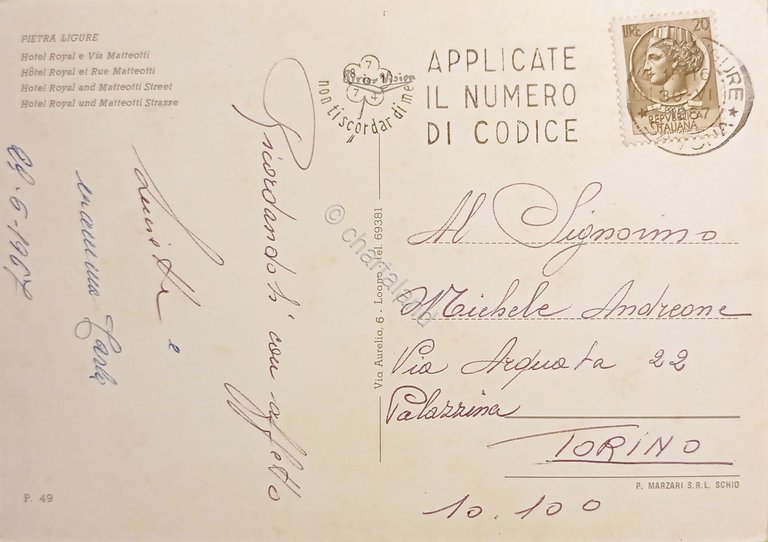 PIETRA LIGURE
Hotel Royal e Via Matteotti
Hôtel Royal et Rue Matteotti
Hotel Royal and Matteotti Street
Hotel Royal und Matteotti Strasse
Ricordandoti con affetto
e
mamma
29-6-1967
P. 49
non ti scordar di me
APPLICATE
IL NUMERO
DI CODICE
LIRE 20
REPVBBLICA
ITALIANA
Via Aurelia, 6 - Loano - tel. 69381
© chartaland
Al Signorino
Michele Andreone
Via Arquata 22
Palazzina
TORINO
P. MARZARI S.R.L. SCHIO
10.100